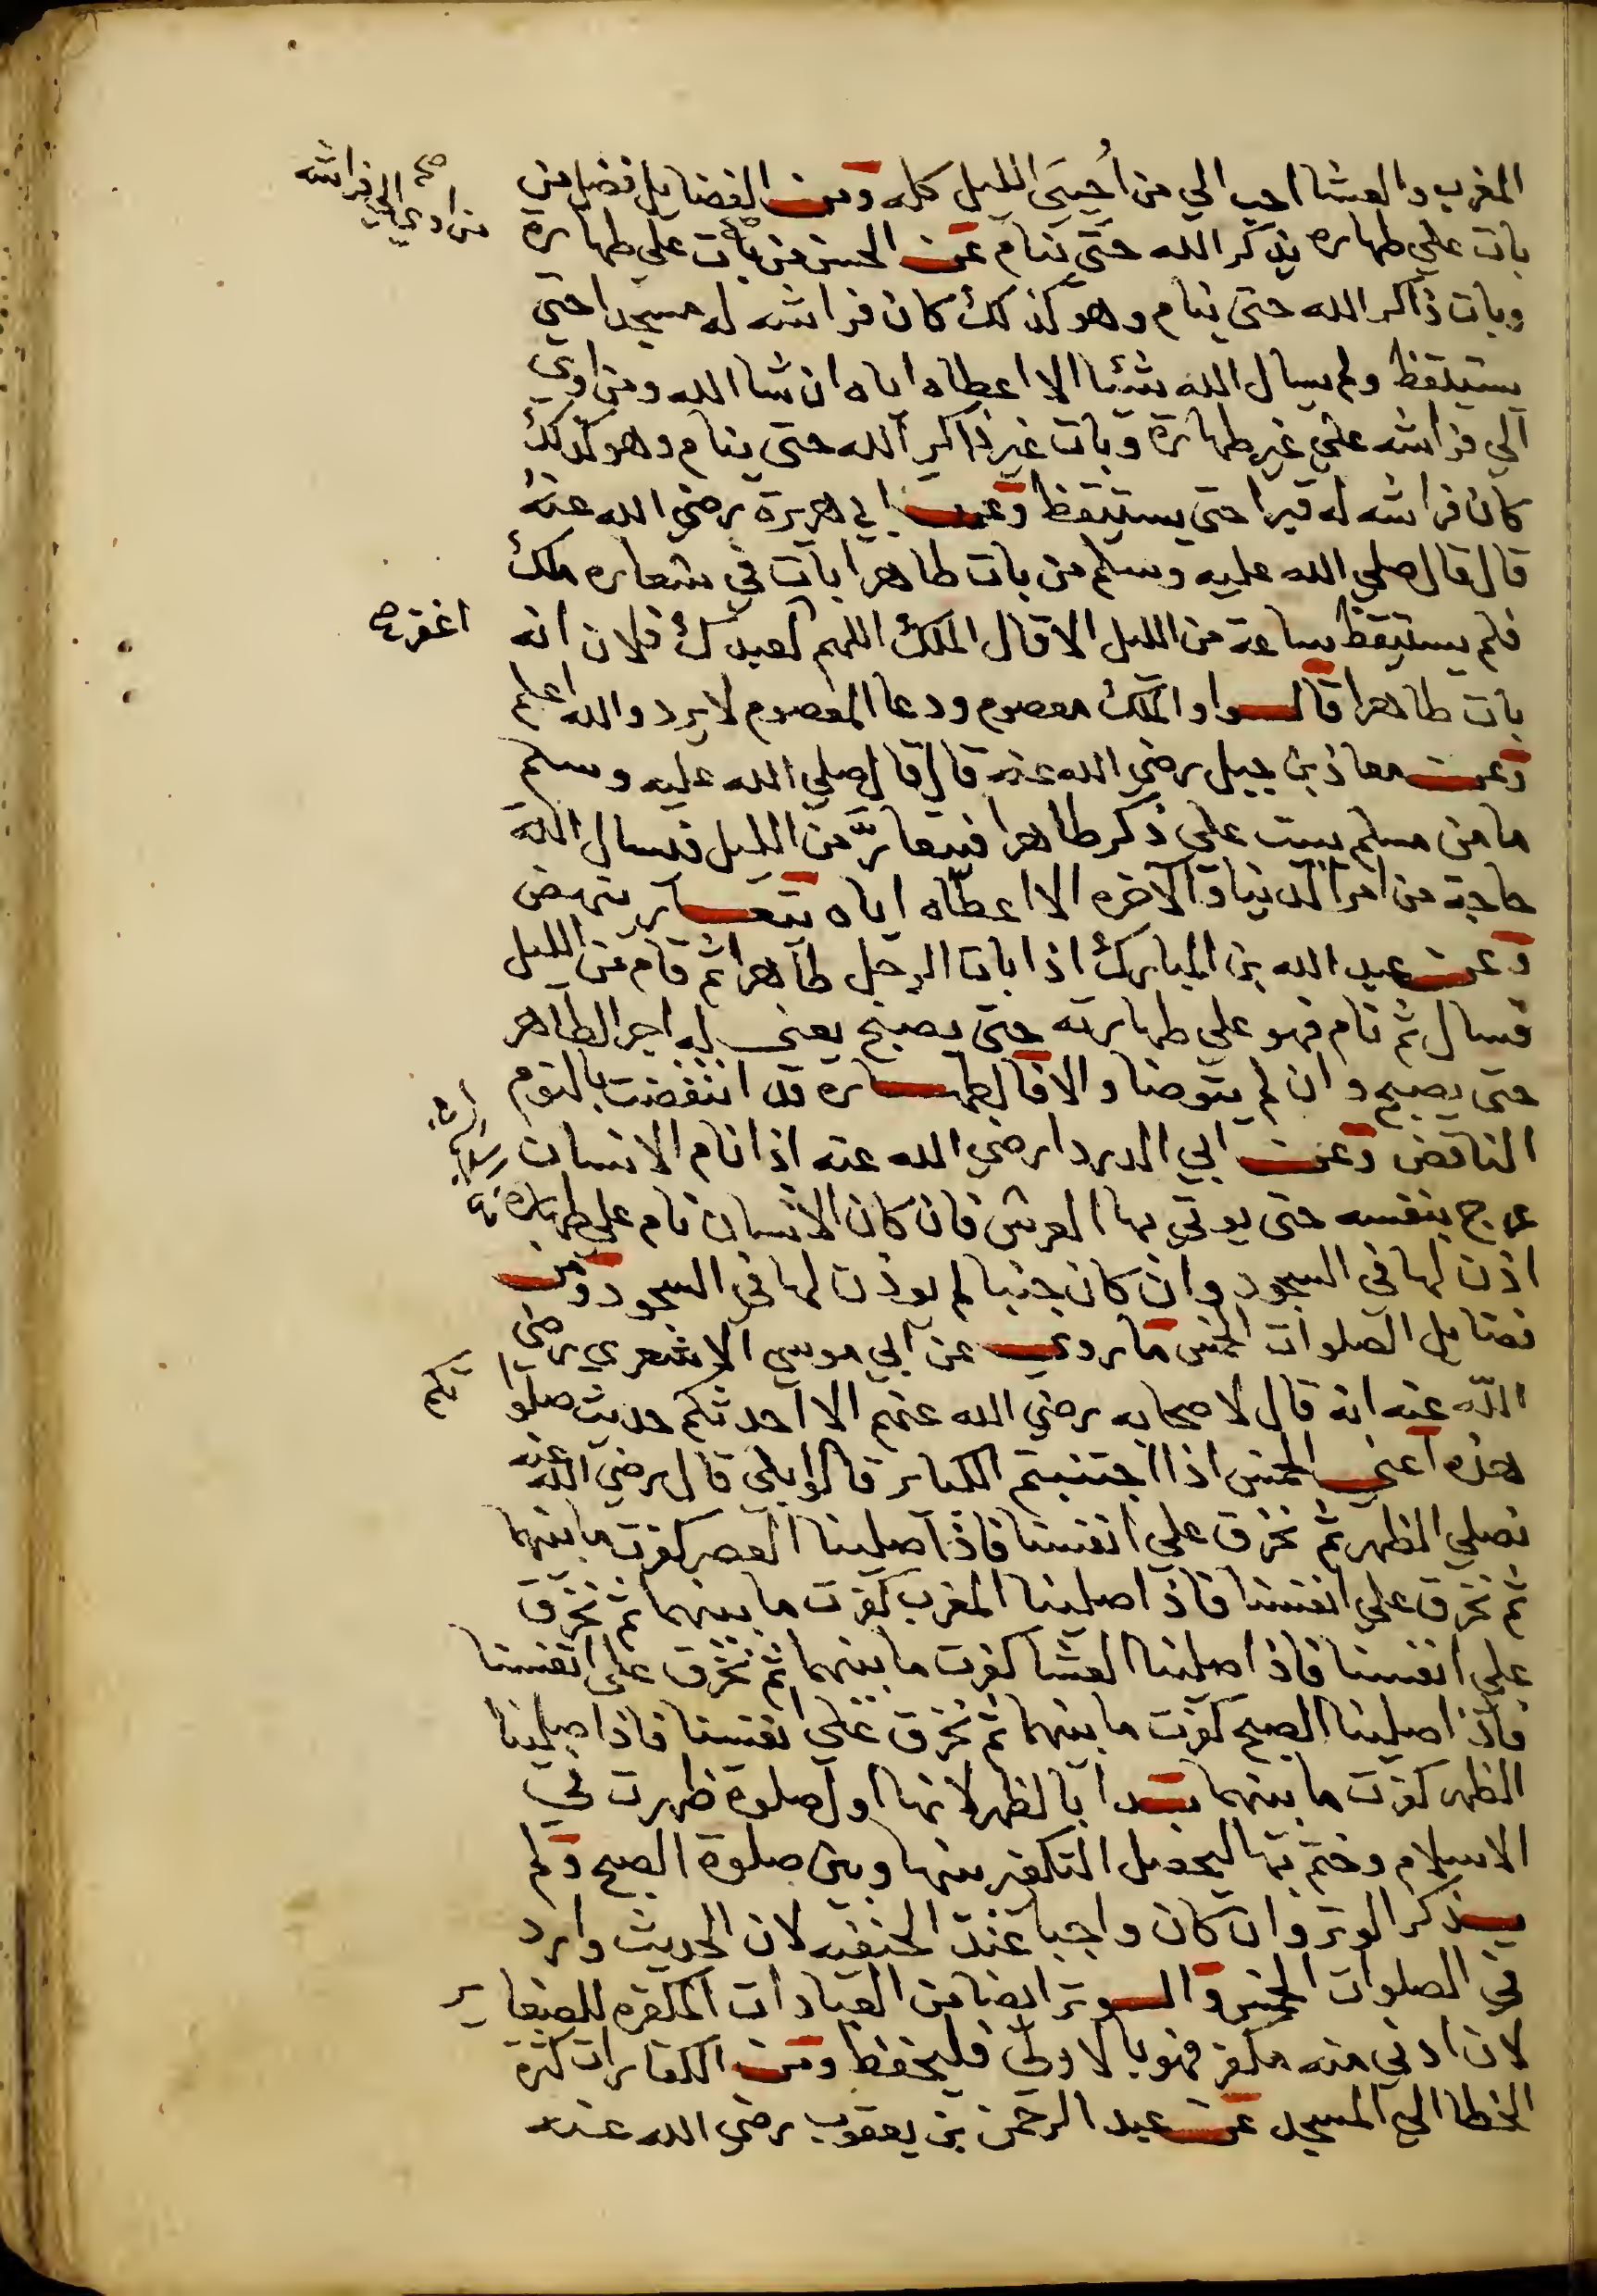 المغرب والعشا احب الي من أحيَي الليل كله ومن الفضايل فضل من
بات علي طهاره يذكر الله حتي ينام عن الحسن من بات علي طهارة
من اوي الي فراشه صح
وبات ذاكر الله حتي ينام وهو كذلك كان فراشه له مسجدا حتي
يستيقظ ولم يسال الله شئيا الا اعطاه اياه ان شا الله ومن اوي
الي فراشه علي غير طهارة وبات غير ذاكر الله حتي ينام وهو كذلك
كان فراشه له قبرا حتي يستيقظ وعن ابي هريرة رضي الله عنه
قال قال صلي الله عليه وسلم من بات طاهرا بات في شعاره ملك
فلم يستيقظ ساعة من الليل الا قال الملك اللهم لعبدك فلان انه
اغفر صح
بات طاهرا قالوا والملك معصوم ودعا المعصوم لا يرد والله اعلم
وعن معاذ بن جبل رضي الله عنه قال قال صلي الله عليه وسلم
ما من مسلم يبيت علي ذكر طاهرا فيتعارّ من الليل فيسال الله
حاجة من امر الدنيا والآخره الا اعطاه اياه يتعار ينهض
وعن عبد الله بن المبارك اذا بات الرجل طاهرا ثم قام من الليل
فسال ثم نام فهو علي طهارته حتي يصبح يعني له اجر الطاهر
حتي يصبح وان لم يتوضا والا فالطهارة قد انتقضت بالنوم
الناقض وعن ابي الدردا رضي الله عنه اذا نام الانسان
عرج بنفسه حتي يوتي بها العرش فان كان الانسان نام علي طهارة
اذن لها في السجود وان كان جنبا لم يوذن لها في السجود ومن
فضايل الصلوات الخمس ما روي عن ابي موسي الاشعري رضي
الله عنه انه قال لاصحابه رضي الله عنهم الا احدثكم حديث صلوا
تكم
هذه اعني الخمس اذا اجتنبتم الكباير قالوا بلي قال رضي الله عنه
نصلي الظهر ثم نخرق علي انفسنا فاذا صلينا العصر كفرت ما بينهما
ثم نخرق علي انفسنا فاذا صلينا المغرب كفرت ما بينهما ثم نخرق
علي انفسنا فاذا صلينا العشا كفرت ما بينهما ثم نخرق علي انفسنا
فاذا صلينا الصبح كفرت ما بينهما ثم نخرق علي انفسنا فاذا صلينا
الظهر كفرت ما بينهما بدا بالظهر لانها اول صلوة ظهرت في
الاسلام وختم بها ليحصل التكفير بينها وبين صلوة الصبح ولم
يذكر الوتر وان كان واجبا عند الحنفيه لان الحديث وارد
في الصلوات الخمس والوتر ايضا من العبادات المكفره للصغاير
لان ادني منه مكفر فهو بالاولي فليحفظ ومن الكفارات كثرة
الخطا الي المسجد عن عبد الرحمن بن يعقوب رضي الله عنه